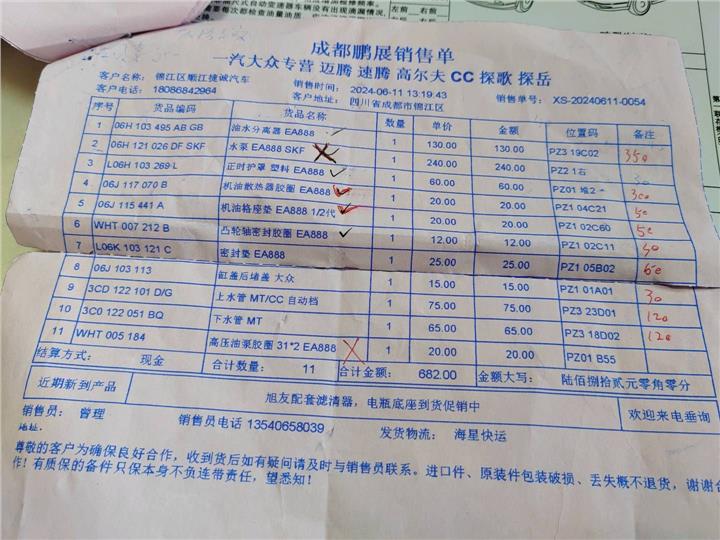 成都鹏展销售单
一汽大众专营 迈腾 速腾 高尔夫 CC 探歌 探岳
客户名称: 锦江区顺江捷诚汽车 销售时间: 2024-06-11 13:19:43
客户电话: 18086842964 客户地址: 四川省成都市锦江区 销售单号: XS-20240611-0054
序号 货品编码 货品名称 数量 单价 金额 位置码 备注
1 06H 103 495 AB GB 油水分离器 EA888 1 130.00 130.00 PZ3 19C02 350
2 06H 121 026 DF SKF 水泵 EA888 SKF 1 240.00 240.00 PZ2 1右
3 L06H 103 269 L 正时护罩 塑料 EA888 1 60.00 60.00 PZ01 堆2 300
4 06J 117 070 B 机油散热器胶圈 EA888 1 20.00 20.00 PZ1 04C21 50
5 06J 115 441 A 机油格座垫 EA888 1/2代 1 20.00 20.00 PZ1 02C60 50
6 WHT 007 212 B 凸轮轴密封胶圈 EA888 1 12.00 12.00 PZ1 02C11 30
7 L06K 103 121 C 密封垫 EA888 1 25.00 25.00 PZ1 05B02 60
8 06J 103 113 缸盖后堵盖 大众 1 15.00 15.00 PZ1 01A01 30
9 3CD 122 101 D/G 上水管 MT/CC 自动档 1 75.00 75.00 PZ3 23D01 120
10 3C0 122 051 BQ 下水管 MT 1 65.00 65.00 PZ3 18D02 120
11 WHT 005 184 高压油泵胶圈 31*2 EA888 1 20.00 20.00 PZ01 B55
结算方式: 现金 合计数量: 11 合计金额: 682.00 金额大写: 陆佰捌拾贰元零角零分
近期新到产品 旭友配套滤清器,电瓶底座到货促销中 欢迎来电垂询
销售员: 管理 销售员电话 13540658039 发货物流: 海星快运
地址:
尊敬的客户为确保良好合作,收到货后如有疑问请及时与销售员联系。进口件、原装件包装破损、丢失概不退货,谢谢合
作!有质保的备件只保本身不负连带责任,望悉知!